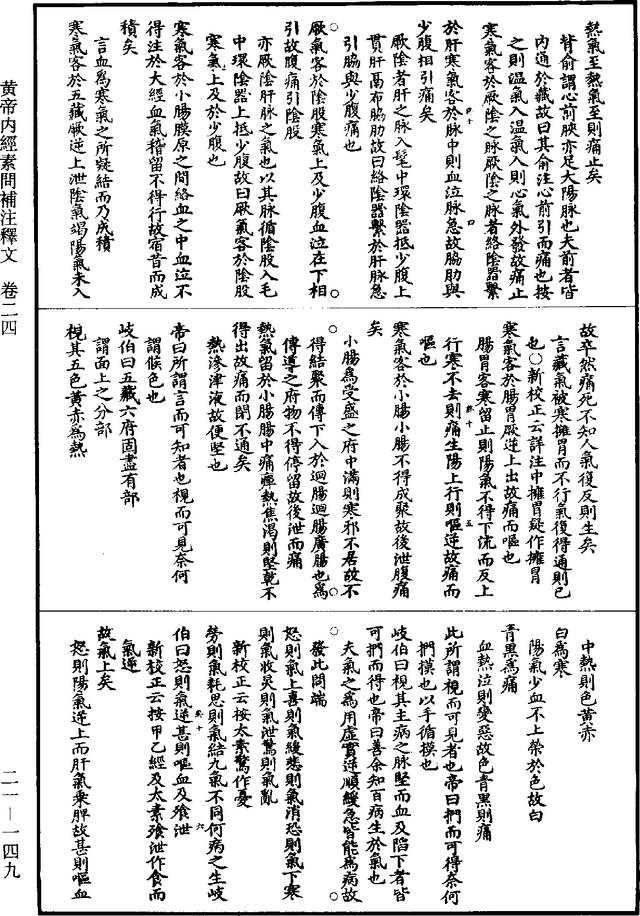 熱氣至熱氣至則痛止矣
背俞謂心俞脉亦足太陽脉也夫前者皆
內通於藏故曰其俞注心前引而痛也按
之則溫氣入溫氣入則心氣外發故痛止
寒氣客於厥陰之脉厥陰之脉者絡陰器繫
於肝寒氣客於脉中則血泣脉急故脇肋與
少腹相引痛矣
厥陰者肝之脉入髦中環陰器抵少腹上
貫肝鬲布脇肋故曰絡陰器繫於肝脉急
引脇與少腹痛也
厥氣客於陰股寒氣上及少腹血泣在下相
引故腹痛引陰股
亦厥陰肝脉之氣也以其脉循陰股入毛
中環陰器上抵少腹故曰厥氣客於陰股
寒氣上及於少腹也
寒氣客於小腸膜原之間絡血之中血泣不
得注於大經血氣稽留不得行故宿昔而成
積矣
言血為寒氣之所凝結而乃成積
寒氣客於五藏厥逆上泄陰氣竭陽氣未入
故卒然痛死不知人氣復反則生矣
言藏氣被寒擁胃而不行氣復得通則已
也○新校正云詳注中擁胃疑作擁冒
寒氣客於腸胃厥逆上出故痛而嘔也
腸胃客寒留止則陽氣不得下流而反上
行寒不去則痛生陽上行則嘔逆故痛而
嘔也
寒氣客於小腸小腸不得成聚故後泄腹痛
矣
小腸為受盛之府中滿則寒邪不居故不
得結聚而傳下入於迴腸迴腸廣腸也為
傳導之府物不得停留故後泄而痛
熱氣留於小腸腸中痛癉熱焦渴則堅乾不
得出故痛而閉不通矣
熱滲津液故便堅也
帝曰所謂言而可知者也視而可見奈何
謂候色也
岐伯曰五藏六府固盡有部
謂面上之分部
視其五色黃赤為熱
中熱則色黃赤
白為寒
陽氣少血不上榮於色故白
青黑為痛
血熱泣則變惡故色青黑則痛
此所謂視而可見者也帝曰捫而可得奈何
捫摸也以手循摸也
岐伯曰視其主病之脉堅而血及陷下者皆
可捫而得也帝曰善余知百病生於氣也
夫氣之為用虛實逆順緩急皆能為病故
發此問端
怒則氣上喜則氣緩悲則氣消恐則氣下寒
則氣收炅則氣泄驚則氣亂
新校正云按太素驚作憂
勞則氣耗思則氣結九氣不同何病之生岐
伯曰怒則氣逆甚則嘔血及飧泄
新校正云按甲乙經及太素飧泄作食而
氣逆
故氣上矣
怒則陽氣逆上而肝氣乘脾故甚則嘔血
黃帝內經素問補注釋文 卷二四
二一—一四九